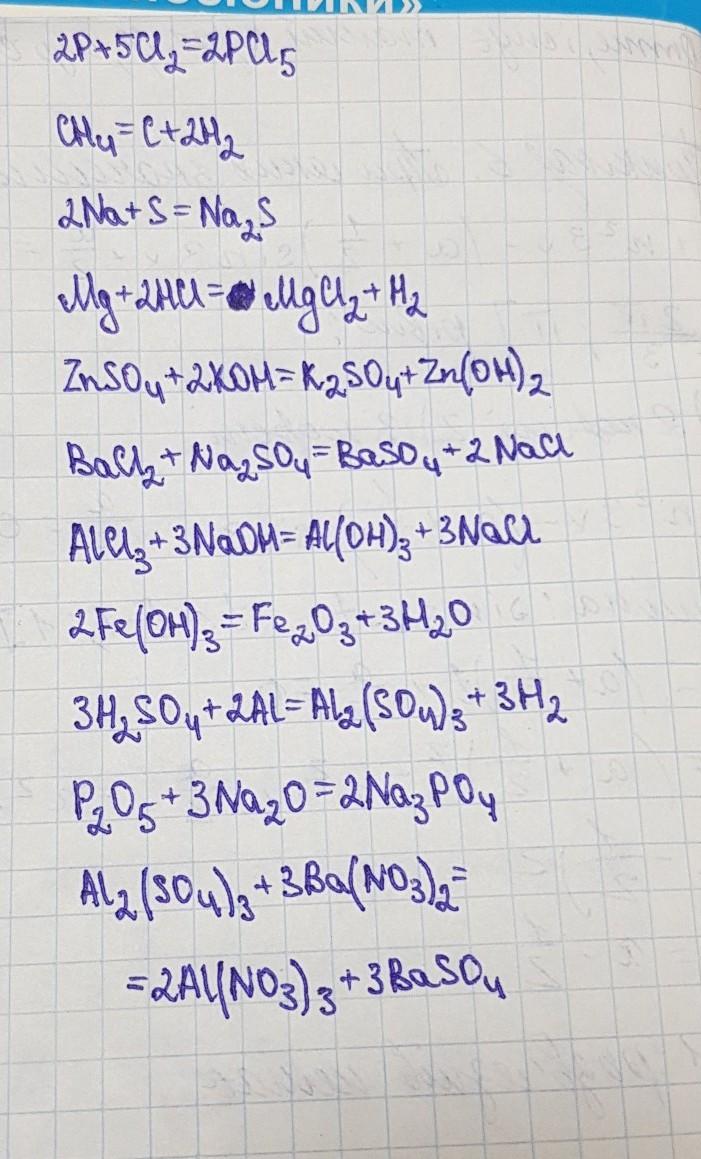 2P+5Cl₂=2PCl₅
CH₄=C+2H₂
2Na+S=Na₂S
Mg+2HCl= MgCl₂+H₂
ZnSO₄+2KOH=K₂SO₄+Zn(OH)₂
BaCl₂+Na₂SO₄=BaSO₄+2NaCl
AlCl₃+3NaOH=Al(OH)₃+3NaCl
2Fe(OH)₃=Fe₂O₃+3H₂O
3H₂SO₄+2Al=Al₂(SO₄)₃+3H₂
P₂O₅+3Na₂O=2Na₃PO₄
Al₂(SO₄)₃+3Ba(NO₃)₂=
=2Al(NO₃)₃+3BaSO₄